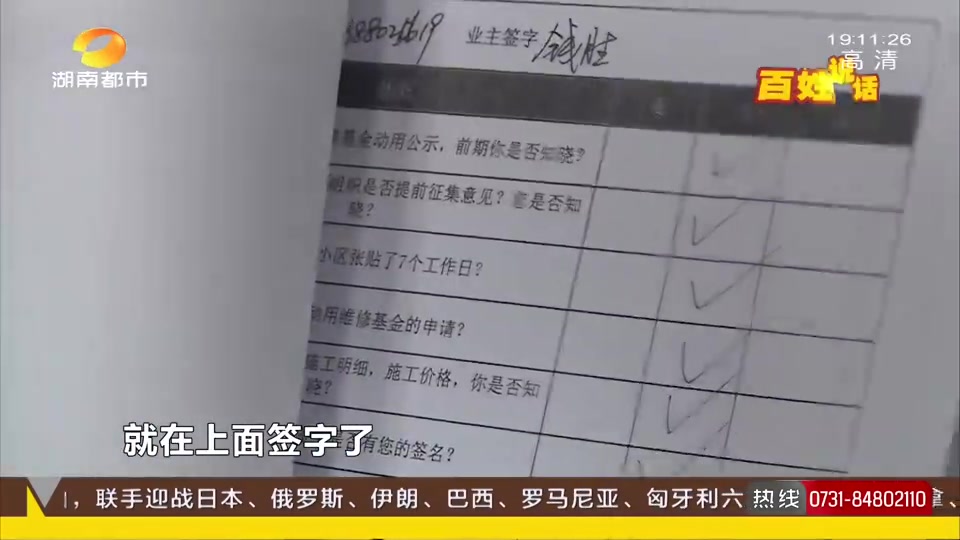 湖南都市
19:11:26
高清
百姓说话
业主签字 钱胜
基金动用公示，前期你是否知晓？
组织是否提前征集意见？意是否知
晓？
小区张贴了7个工作日？
动用维修基金的申请？
施工明细，施工价格，你是否知
晓？
有您的签名？
就在上面签字了
，联手迎战日本、俄罗斯、伊朗、巴西、罗马尼亚、匈牙利六
热线 0731-84802110
拿、